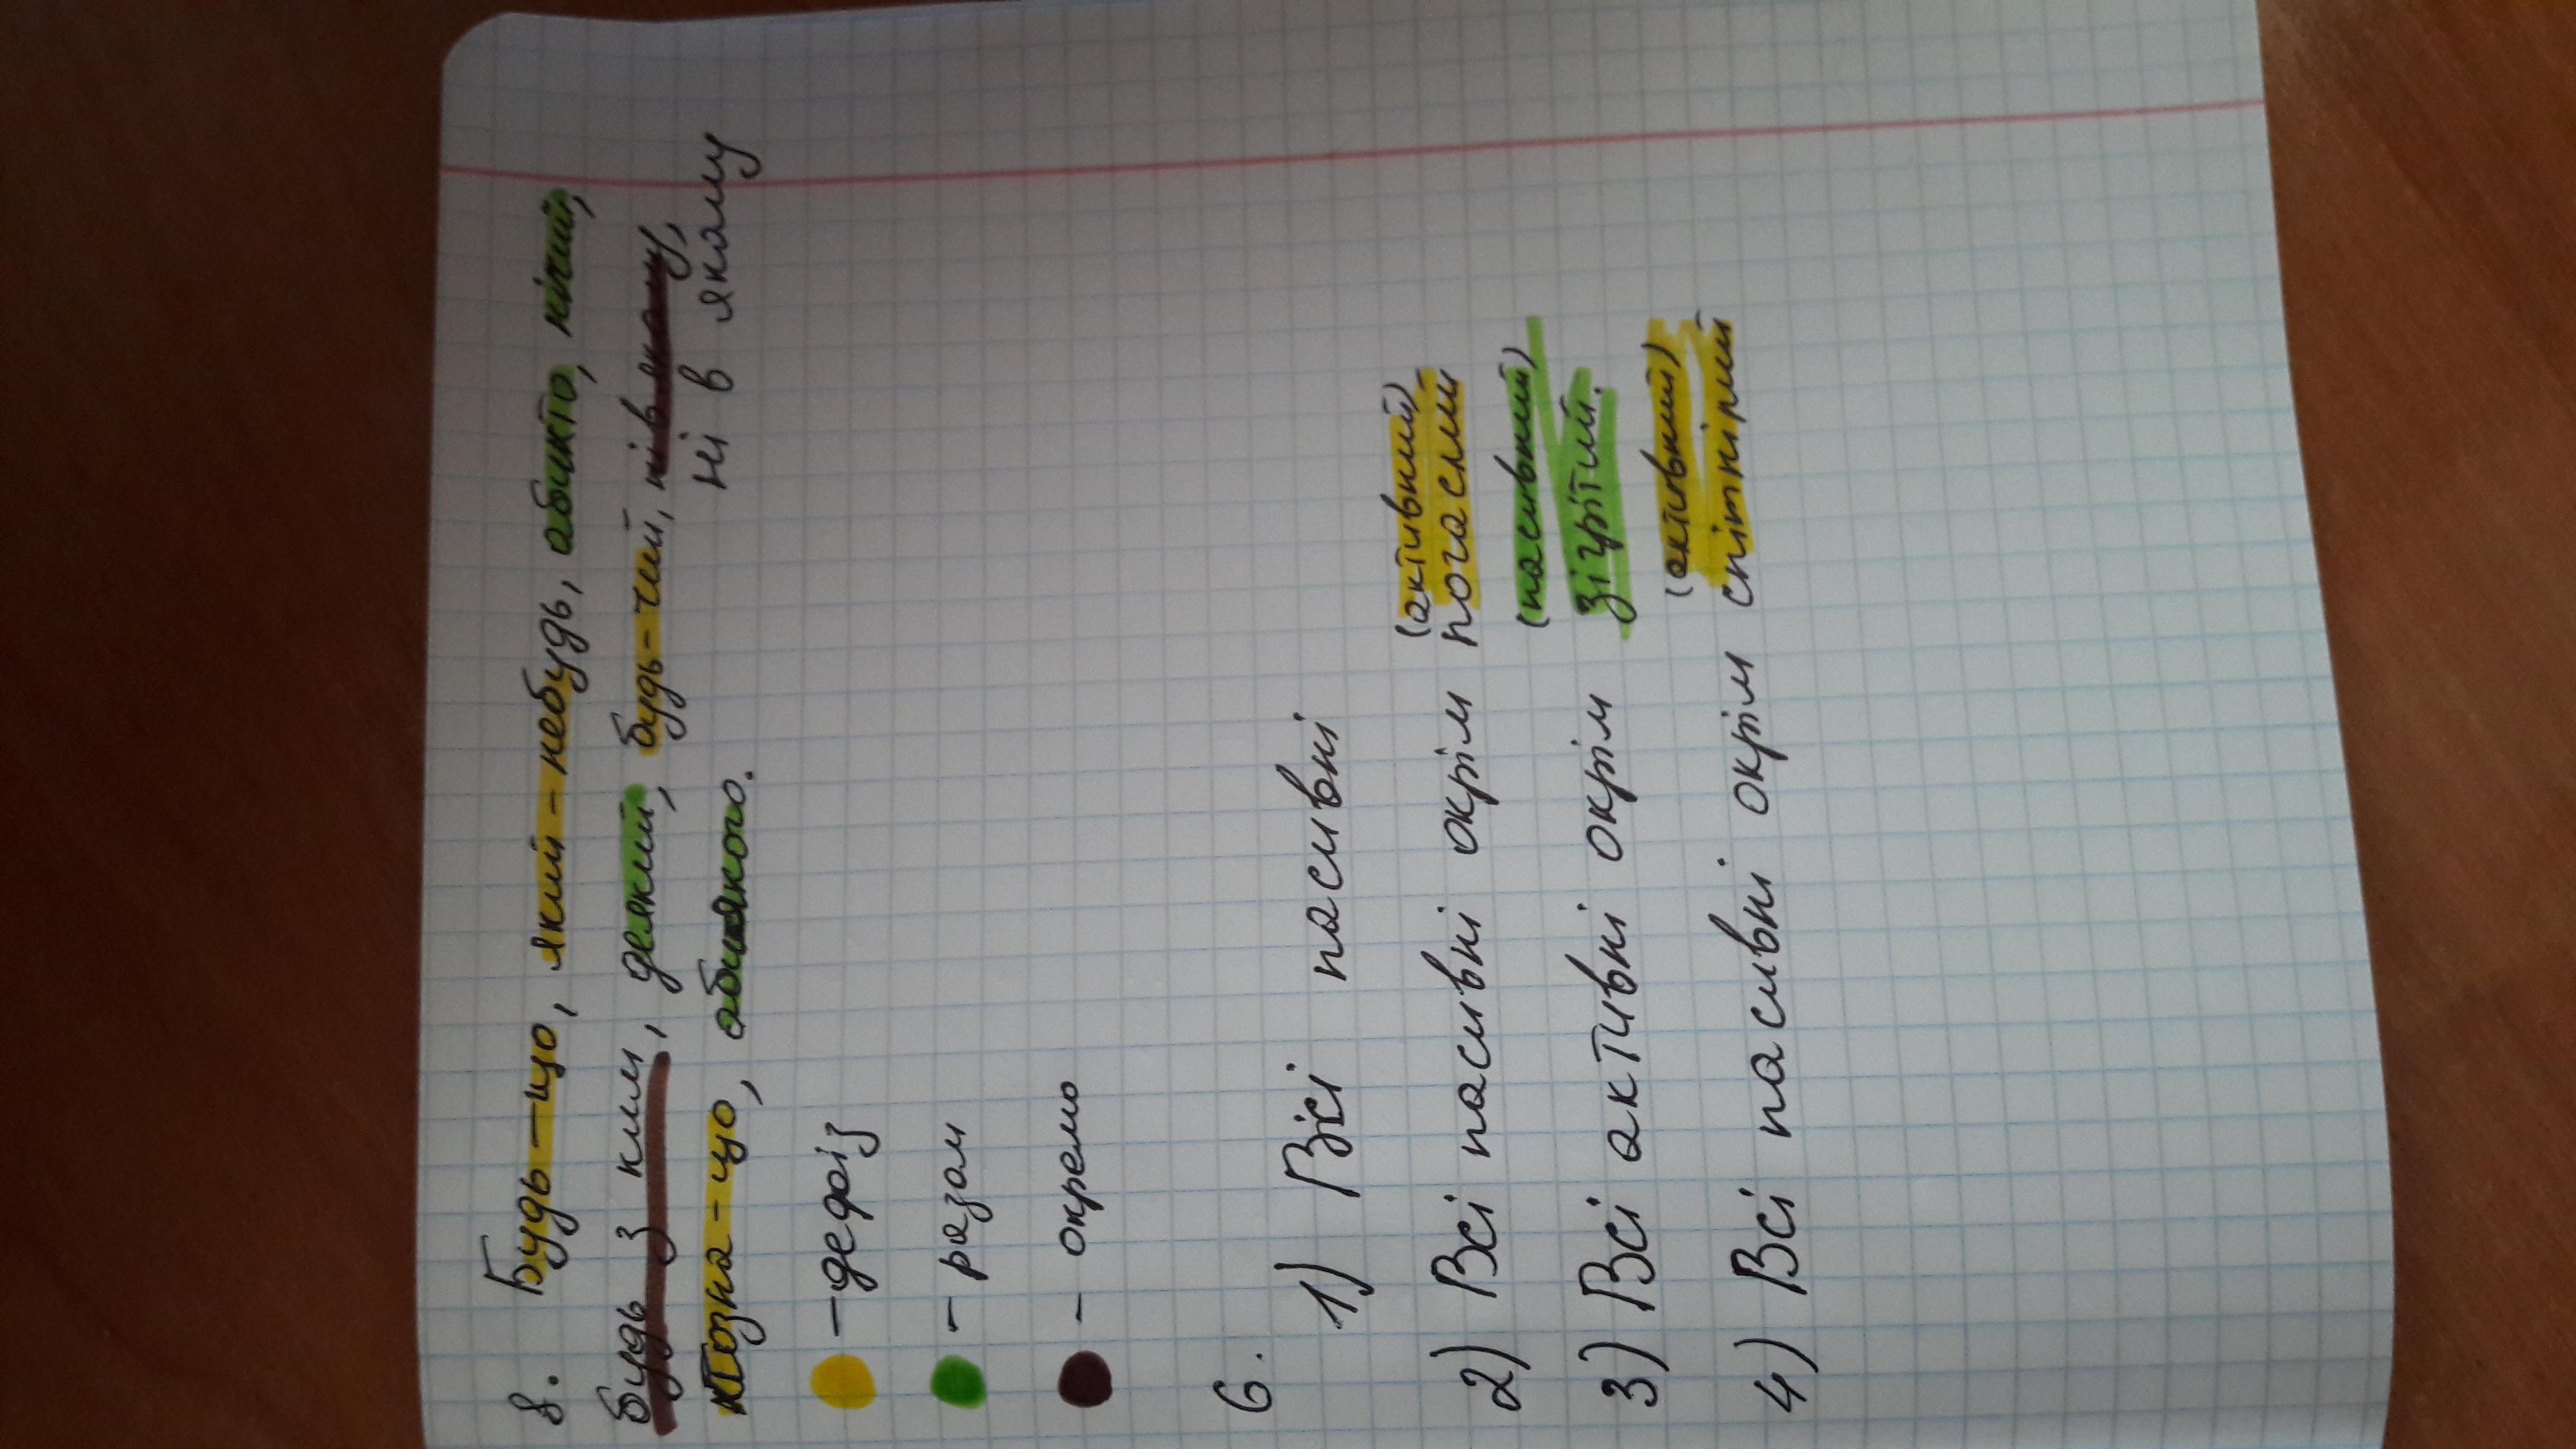 8. Будь-що, який-небудь, абихто, нічий,
будь з ким, деякий, будь-чий, ні в якому,
ні в якому
хтозна-що, абиякого.
- дефіз
- разом
- окремо
6.
1) Всі пасивні
(активний)
2) Всі пасивні окрім погаслий
(пасивний)
3) Всі активні окрім зігрітий.
(активний)
4) Всі пасивні окрім спітнілий